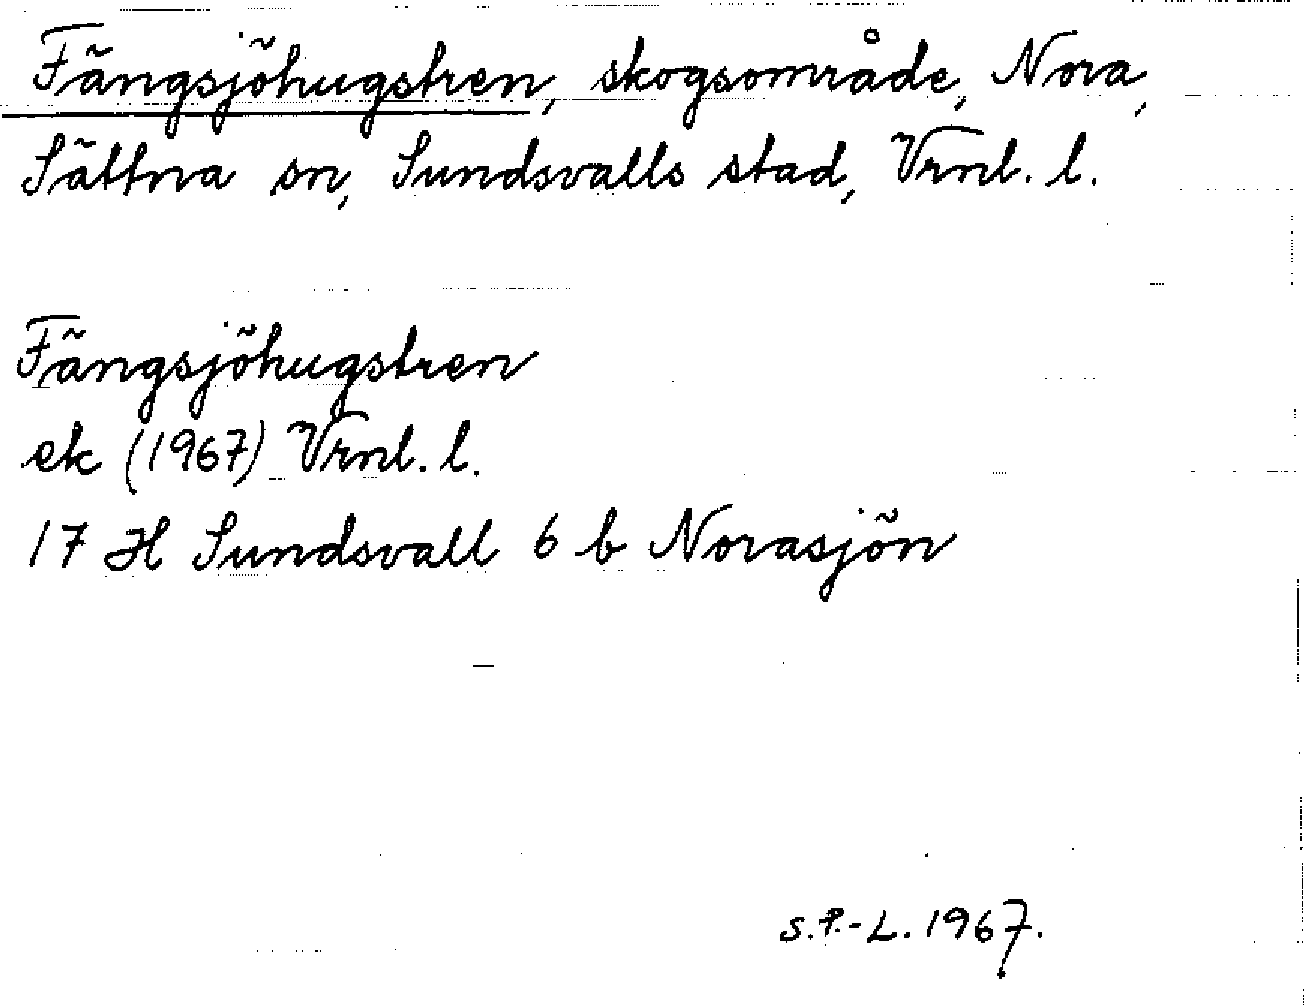 Fängsjöhugstren, skogsområde, Nora,
Sättna sn, Sundsvalls stad, Vrnl. l.
Fängsjöhugstren
ek (1967) Vrnl. l.
17 H Sundsvall 6 b Norasjön
S.P.-L. 1967.